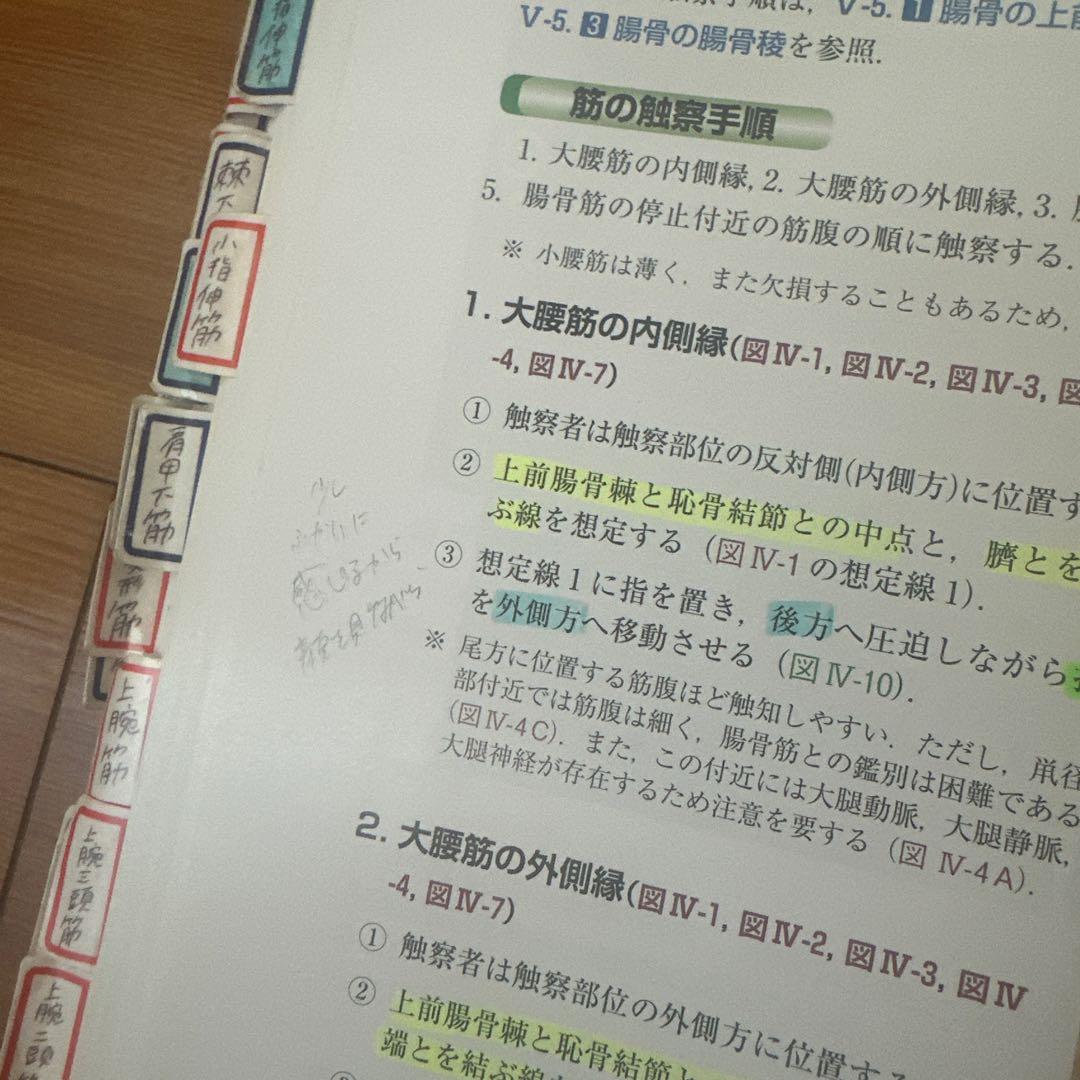 指伸筋
棘下
小指伸筋
肩甲下筋
筋
上腕筋
上腕三頭筋
上腕二頭筋
V-5. 1 腸骨の上前
V-5. 3 腸骨の腸骨稜を参照.
筋の触察手順
1. 大腰筋の内側縁, 2. 大腰筋の外側縁, 3.
5. 腸骨筋の停止付近の筋腹の順に触察する.
※ 小腰筋は薄く, また欠損することもあるため,
1. 大腰筋の内側縁(図Ⅳ-1, 図Ⅳ-2, 図Ⅳ-3, 図
-4, 図Ⅳ-7)
① 触察者は触察部位の反対側(内側方)に位置す
② 上前腸骨棘と恥骨結節との中点と, 臍とを
ぶ線を想定する (図Ⅳ-1 の想定線 1).
③ 想定線 1 に指を置き, 後方へ圧迫しながら
を外側方へ移動させる (図Ⅳ-10).
※ 尾方に位置する筋腹ほど触知しやすい. ただし, 鼡径
部付近では筋腹は細く, 腸骨筋との鑑別は困難である
(図Ⅳ-4C). また, この付近には大腿動脈, 大腿静脈,
大腿神経が存在するため注意を要する (図 Ⅳ-4A).
少し
感じるから
2. 大腰筋の外側縁(図Ⅳ-1, 図Ⅳ-2, 図Ⅳ-3, 図Ⅳ
-4, 図Ⅳ-7)
① 触察者は触察部位の外側方に位置する
② 上前腸骨棘と恥骨結節と
端とを結ぶ線